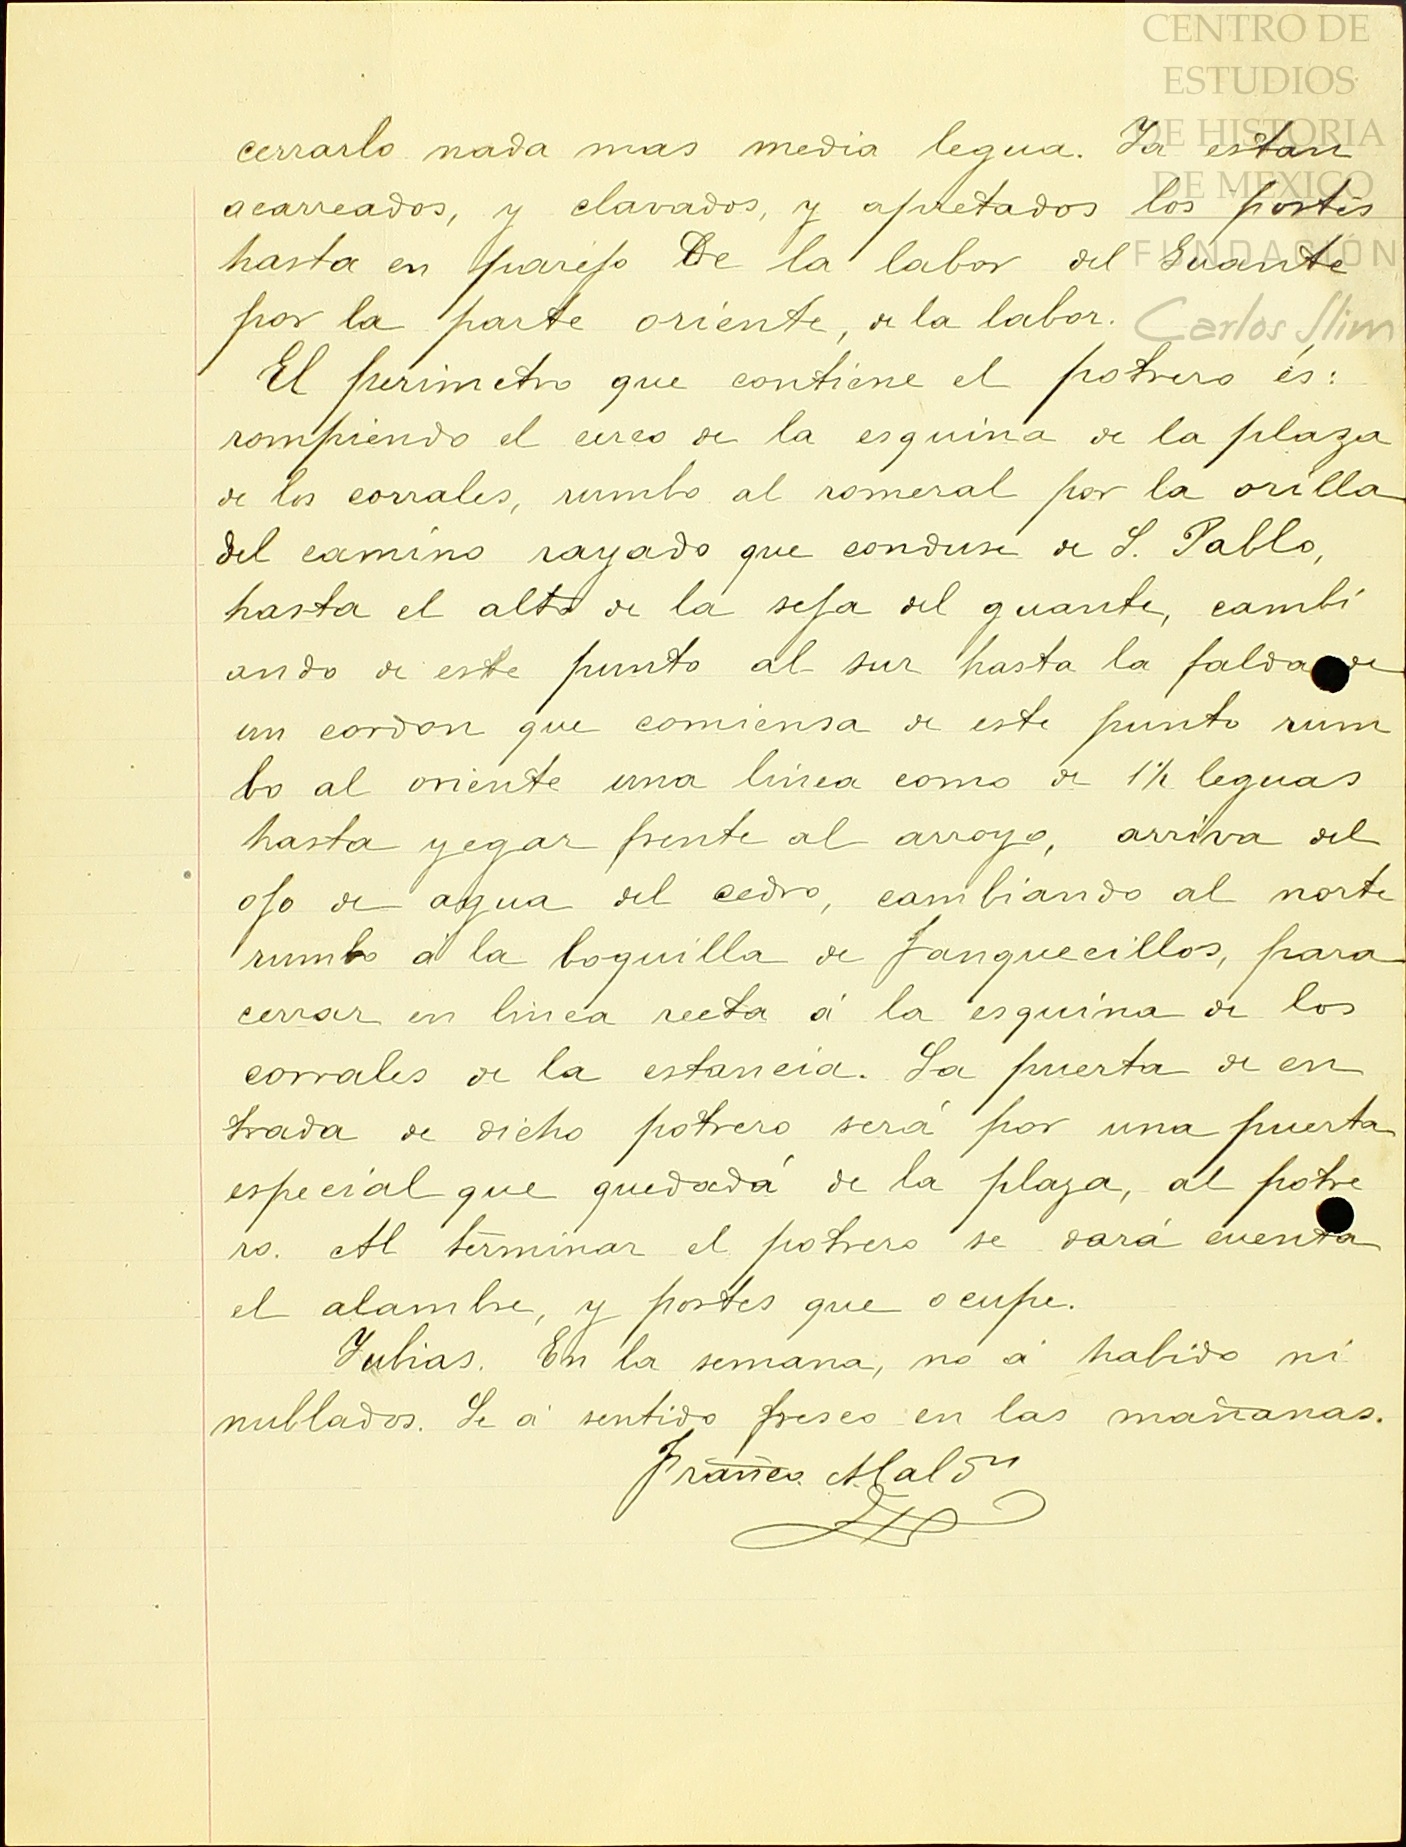 CENTRO DE
ESTUDIOS
DE HISTORIA
DE MEXICO
FUNDACIÓN
Carlos Slim
cerrarlo nada mas media legua. Ya estan
acarreados, y clavados, y apretados los postes
hasta en parejo De la labor del Guante
por la parte oriente, de la labor.
El perimetro que contiene el potrero és:
rompiendo el cerco de la esquina de la plaza
de los corrales, rumbo al romeral por la orilla
del camino rayado que conduse de S. Pablo,
hasta el alto de la seja del guante, cambi
ando de este punto al sur hasta la falda de
un cordon que comiensa de este punto rum
bo al oriente una linea como de 1½ leguas
hasta yegar frente al arroyo, arriva del
ojo de agua del cedro, cambiando al norte
rumbo á la boquilla de Janquecillos, para
cerrar en linea recta á la esquina de los
corrales de la estancia. La puerta de en
trada de dicho potrero será por una puerta
especial que quedadá de la plaza, al potre
ro. Al terminar el potrero se dará cuenta
el alambre, y postes que ocupe.
Yubias. En la semana, no á habido ni
nublados. Se á sentido fresco en las mañanas.
Franco. Maldn